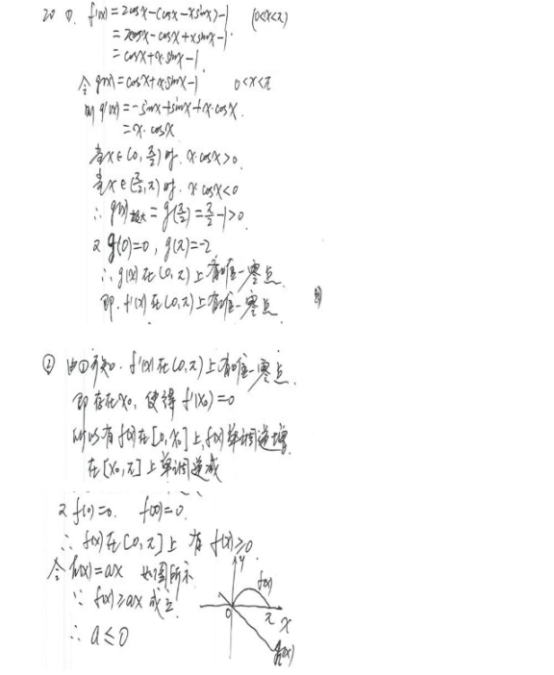 20 ①. f'(x)=2cosx-(cosx-xsinx)-1 (0<x<π)
=2cosx-cosx+xsinx-1
=cosx+x·sinx-1
令g(x)=cosx+x·sinx-1 0<x<π
则g'(x)=-sinx+sinx+x·cosx.
=x·cosx
当x∈(0,π/2)时. x·cosx>0.
当x∈(π/2,π)时. x cosx<0
∴ g(x)极大=g(π/2)=π/2-1>0
又g(0)=0, g(π)=-2
∴g(x)在(0,π)上有唯一零点.
即. f'(x)在(0,π)上有唯一零点.
② 由①可知. f'(x)在(0,π)上有唯一零点.
即存在x₀, 使得f'(x₀)=0
所以有f(x)在[0,x₀]上,f(x)单调递增.
在[x₀,π]上单调递减
又f(0)=0. f(π)=0.
∴ f(x)在[0,π]上 有f(x)≥0
令h(x)=ax 如图所示
∵ f(x)≥ax成立
∴ a≤0
y
f(x)
0
π
x